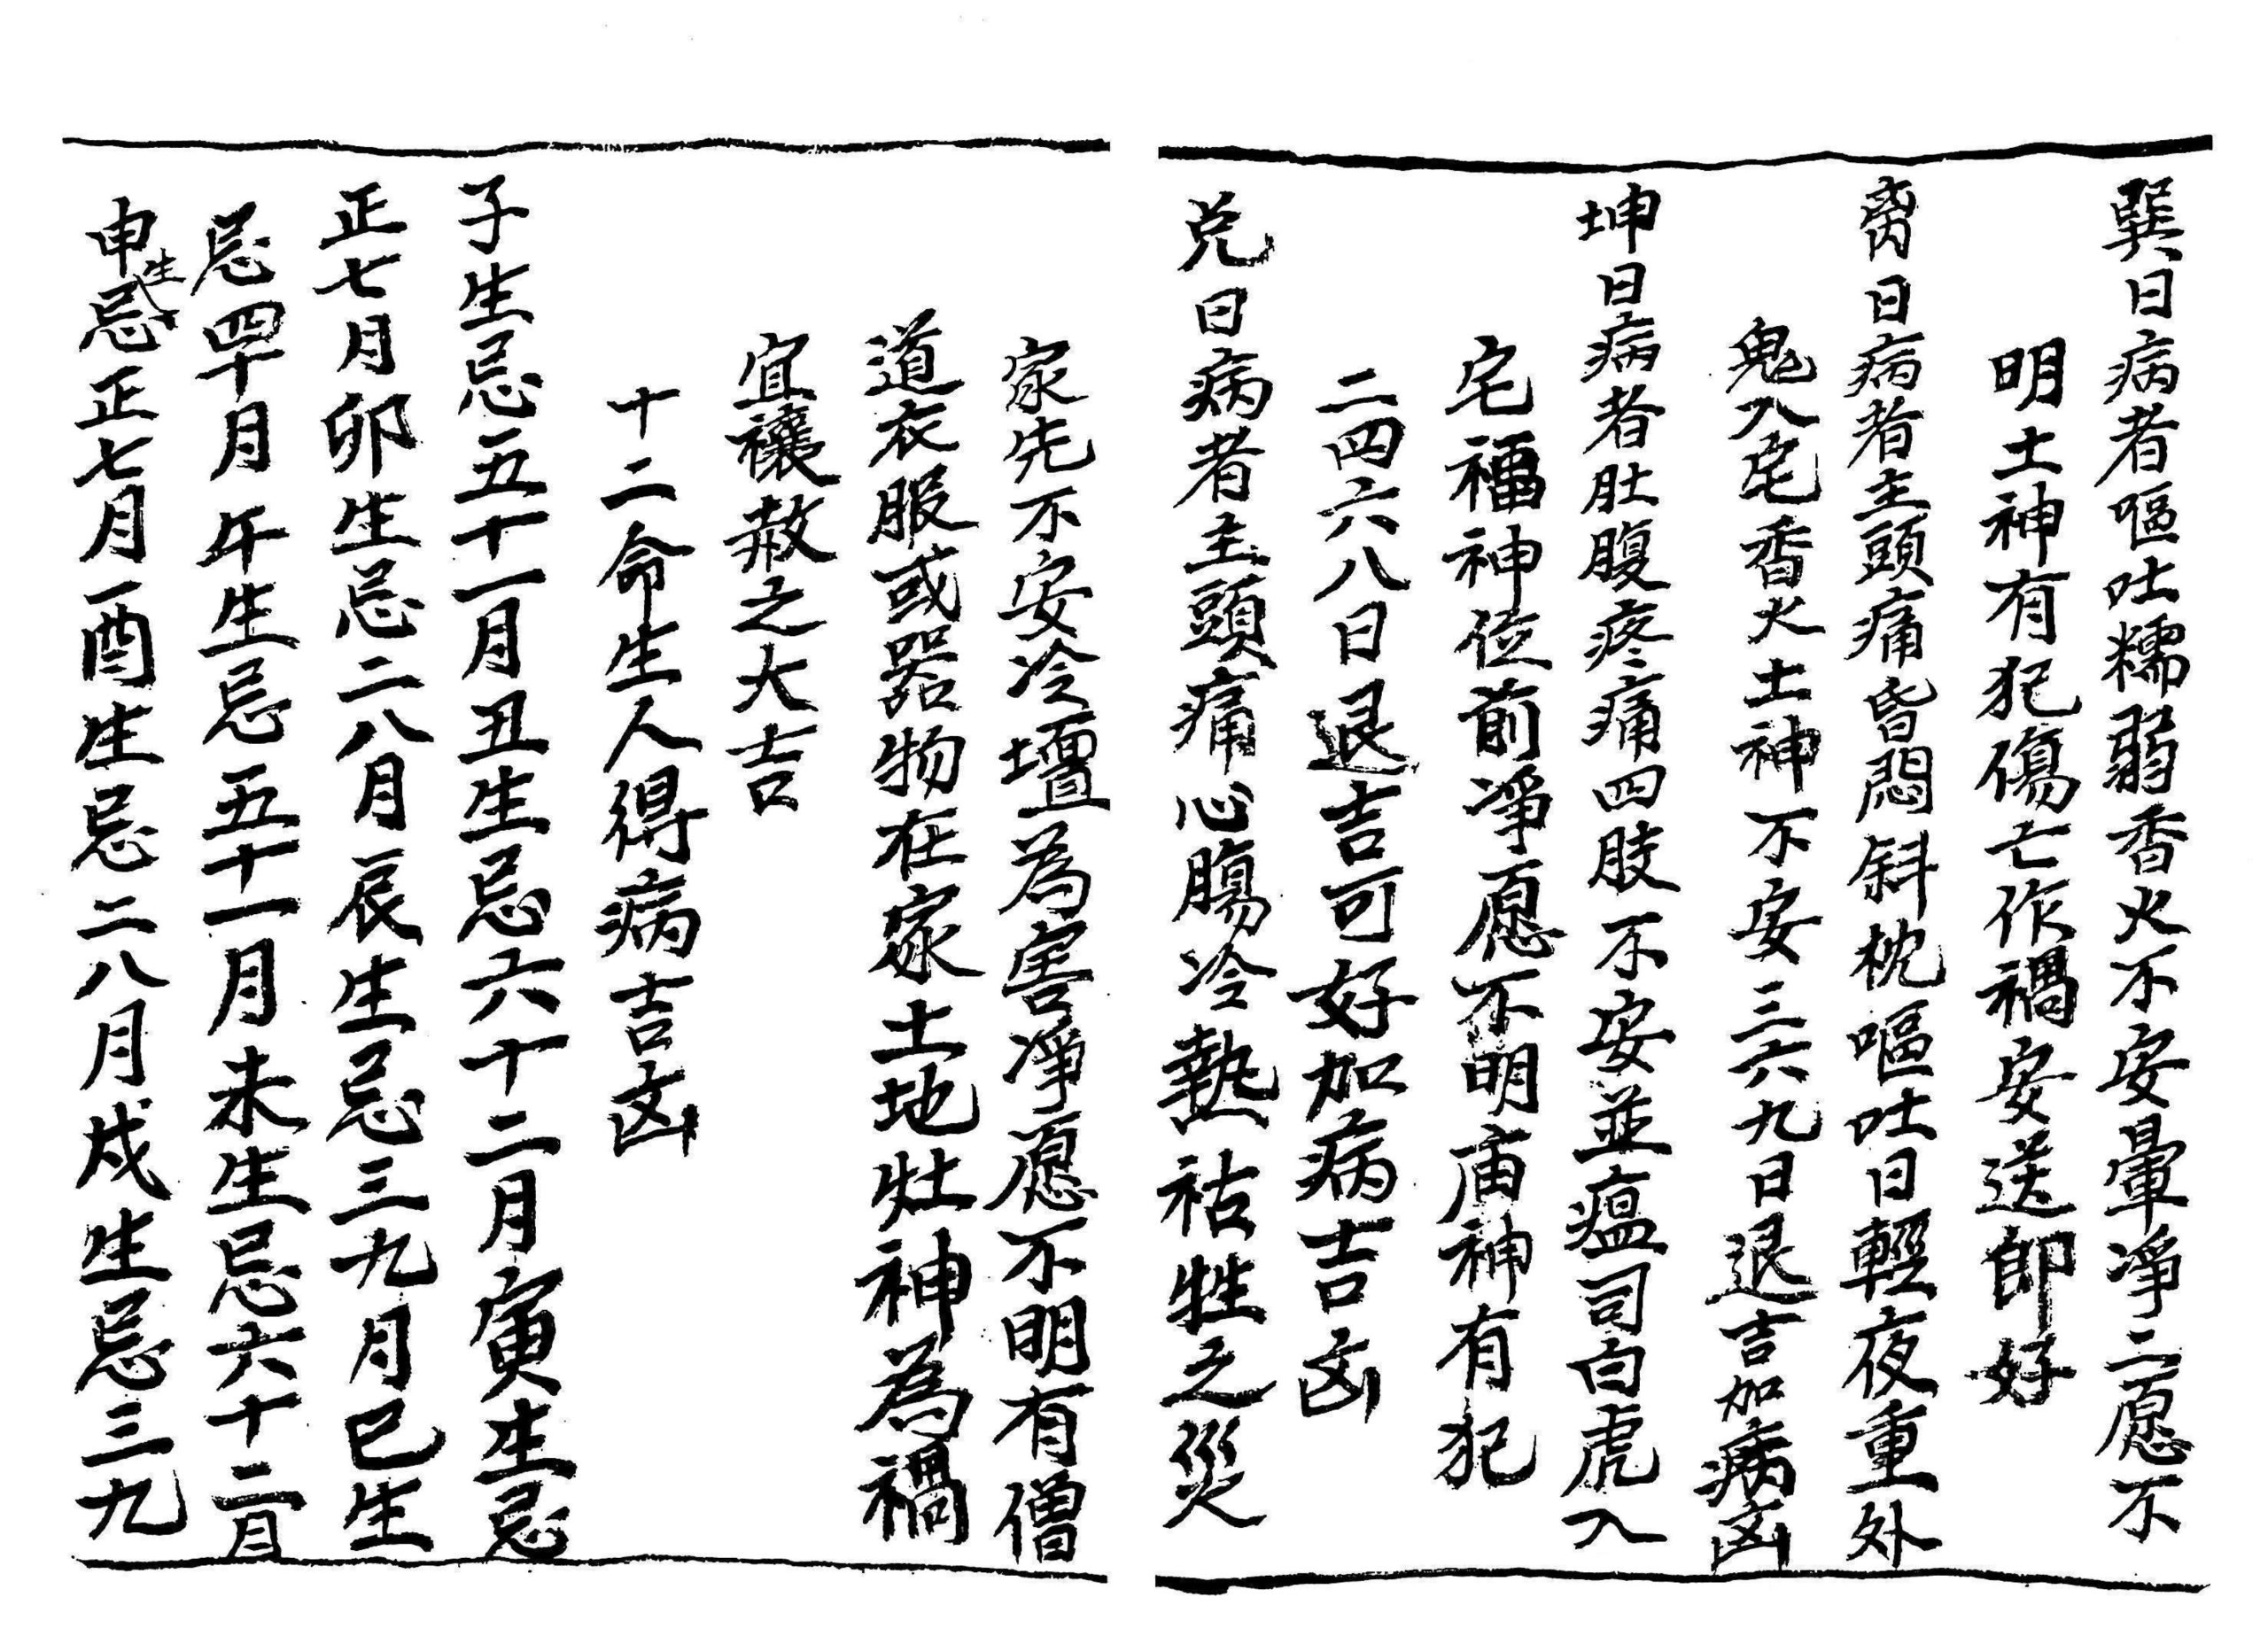 巽日病者嘔吐糯弱香火不安暈淨二愿不
明土神有犯傷亡作禍安送即好
离日病者主頭痛昏悶斜枕嘔吐日輕夜重外
鬼入宅香火土神不安三六九日退吉加病凶
坤日病者肚腹疼痛四肢不安並瘟司白虎入
宅福神位前淨愿不明庙神有犯
二四六八日退吉可好加病吉凶
兑日病者主頭痛心腸冷熱祜牲之災
家先不安冷壇為害淨愿不明有僧
道衣服或器物在家土地灶神為禍
宜禳赦之大吉
十二命生人得病吉凶
子生忌五十一月丑生忌六十二月寅生忌
正七月卯生忌二八月辰生忌三九月巳生
忌四十月午生忌五十一月未生忌六十二月
申生忌正七月酉生忌二八月戌生忌三九